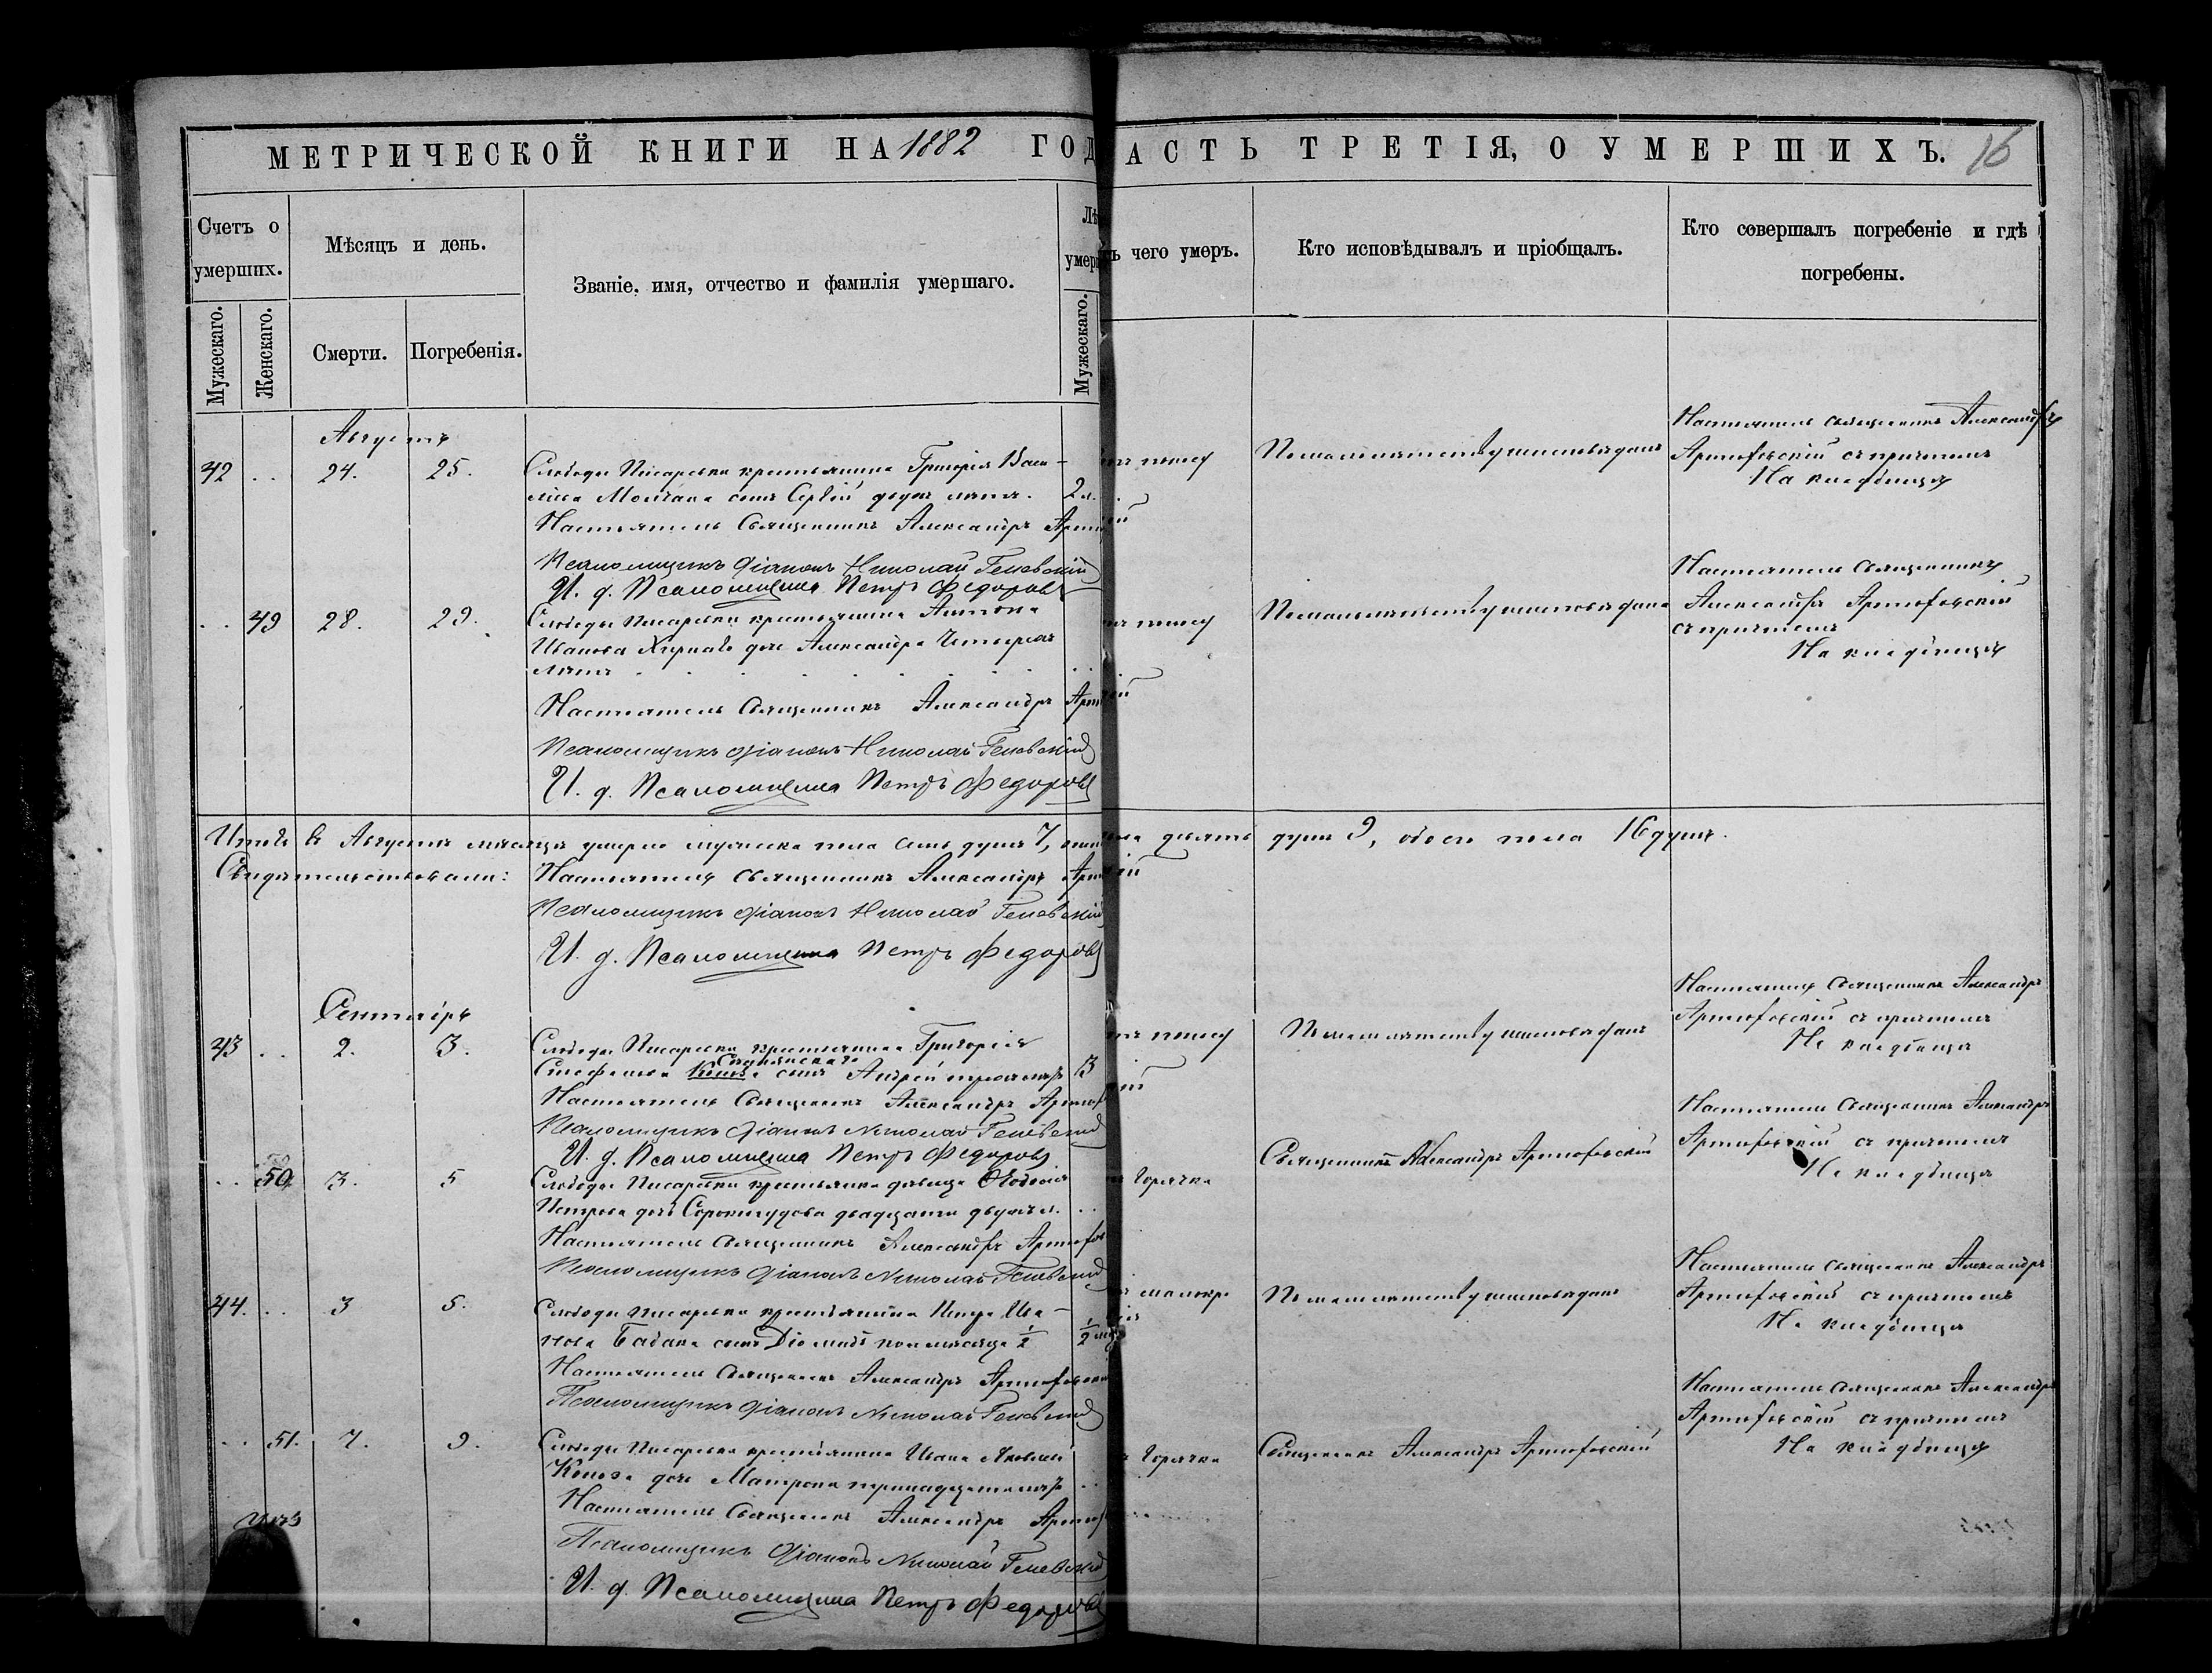 МЕТРИЧЕСКОЙ КНИГИ НА 1882 ГОД
АСТЬ ТРЕТІЯ, О УМЕРШИХЪ. 16
Счетъ о умершихъ.
Мѣсяцъ и день.
Званіе, имя, отчество и фамилія умершаго.
Лѣ
умер
Мужескаго.
Женскаго.
Смерти.
Погребенія.
Мужескаго.
ъ чего умеръ.
Кто исповѣдывалъ и пріобщалъ.
Кто совершалъ погребеніе и гдѣ погребены.
Августъ
42 . . 24. 25. Слободы Писаревки крестьянина Григорія Васи-
льева Молчана сынъ Сергѣй двухъ лѣтъ. 2 л.
поносу
По малолѣтству неисповѣданъ
Настоятель Священникъ Александръ
Артюховскій съ причтомъ
На кладбищѣ
Настоятель Священникъ Александръ Арт
Псаломщикъ Діаконъ Николай Геневскій
И. д. Псаломщика Петръ Федоровъ
. . 49 28. 29. Слободы Писаревки крестьянина Антона
Иванова дочь Александра четырехъ
лѣтъ
поносу
По малолѣтству неисповѣдана
Настоятель Священникъ
Александръ Артюховскій
съ причтомъ
На кладбищѣ
Настоятель Священникъ Александръ Арт
Псаломщикъ Діаконъ Николай Геневскій
И. д. Псаломщика Петръ Федоровъ
Итого въ Августѣ мѣсяцѣ умерло мужеска пола семь душъ 7, девять душъ 9, обоего пола 16 душъ.
Свидѣтельствовали: Настоятель Священникъ Александръ Арт
Псаломщикъ Діаконъ Николай Геневскій
И. д. Псаломщика Петръ Федоровъ
Сентябрь
43 . . 2. 3. Слободы Писаревки крестьянина Григорія
Стефанова сынъ Андрей трехъ лѣтъ 3
поносу
По малолѣтству неисповѣданъ
Настоятель Священникъ Александръ
Артюховскій съ причтомъ
На кладбищѣ
Настоятель Священникъ Александръ Артюх
Псаломщикъ Діаконъ Николай Геневскій
И. д. Псаломщика Петръ Федоровъ
. . 50 3. 5 Слободы Писаревки крестьянка дѣвица
Петрова дочь двадцати двухъ л.
Горячка
Священникъ Александръ Артюховскій
Настоятель Священникъ Александръ
Артюховскій съ причтомъ
На кладбищѣ
Настоятель Священникъ Александръ Артюхов
Псаломщикъ Діаконъ Николай Геневскій
44. . . 3 5. Слободы Писаревки крестьянина Петра Ива-
нова Бабака сынъ Діомидъ полмѣсяца ½ ½ мѣ
По малолѣтству неисповѣданъ
Настоятель Священникъ Александръ
Артюховскій съ причтомъ
На кладбищѣ
Настоятель Священникъ Александръ Артюховскі
Псаломщикъ Діаконъ Николай Геневскій
. . 51. 7. 9. Слободы Писаревки крестьянина Ивана Яковлева
дочь Матрона тринадцати лѣтъ
Горячка
Священникъ Александръ Артюховскій
Настоятель Священникъ Александръ
Артюховскій съ причтомъ
На кладбищѣ
Настоятель Священникъ Александръ Артюх
Псаломщикъ Діаконъ Николай Геневскій
И. д. Псаломщика Петръ Федоровъ